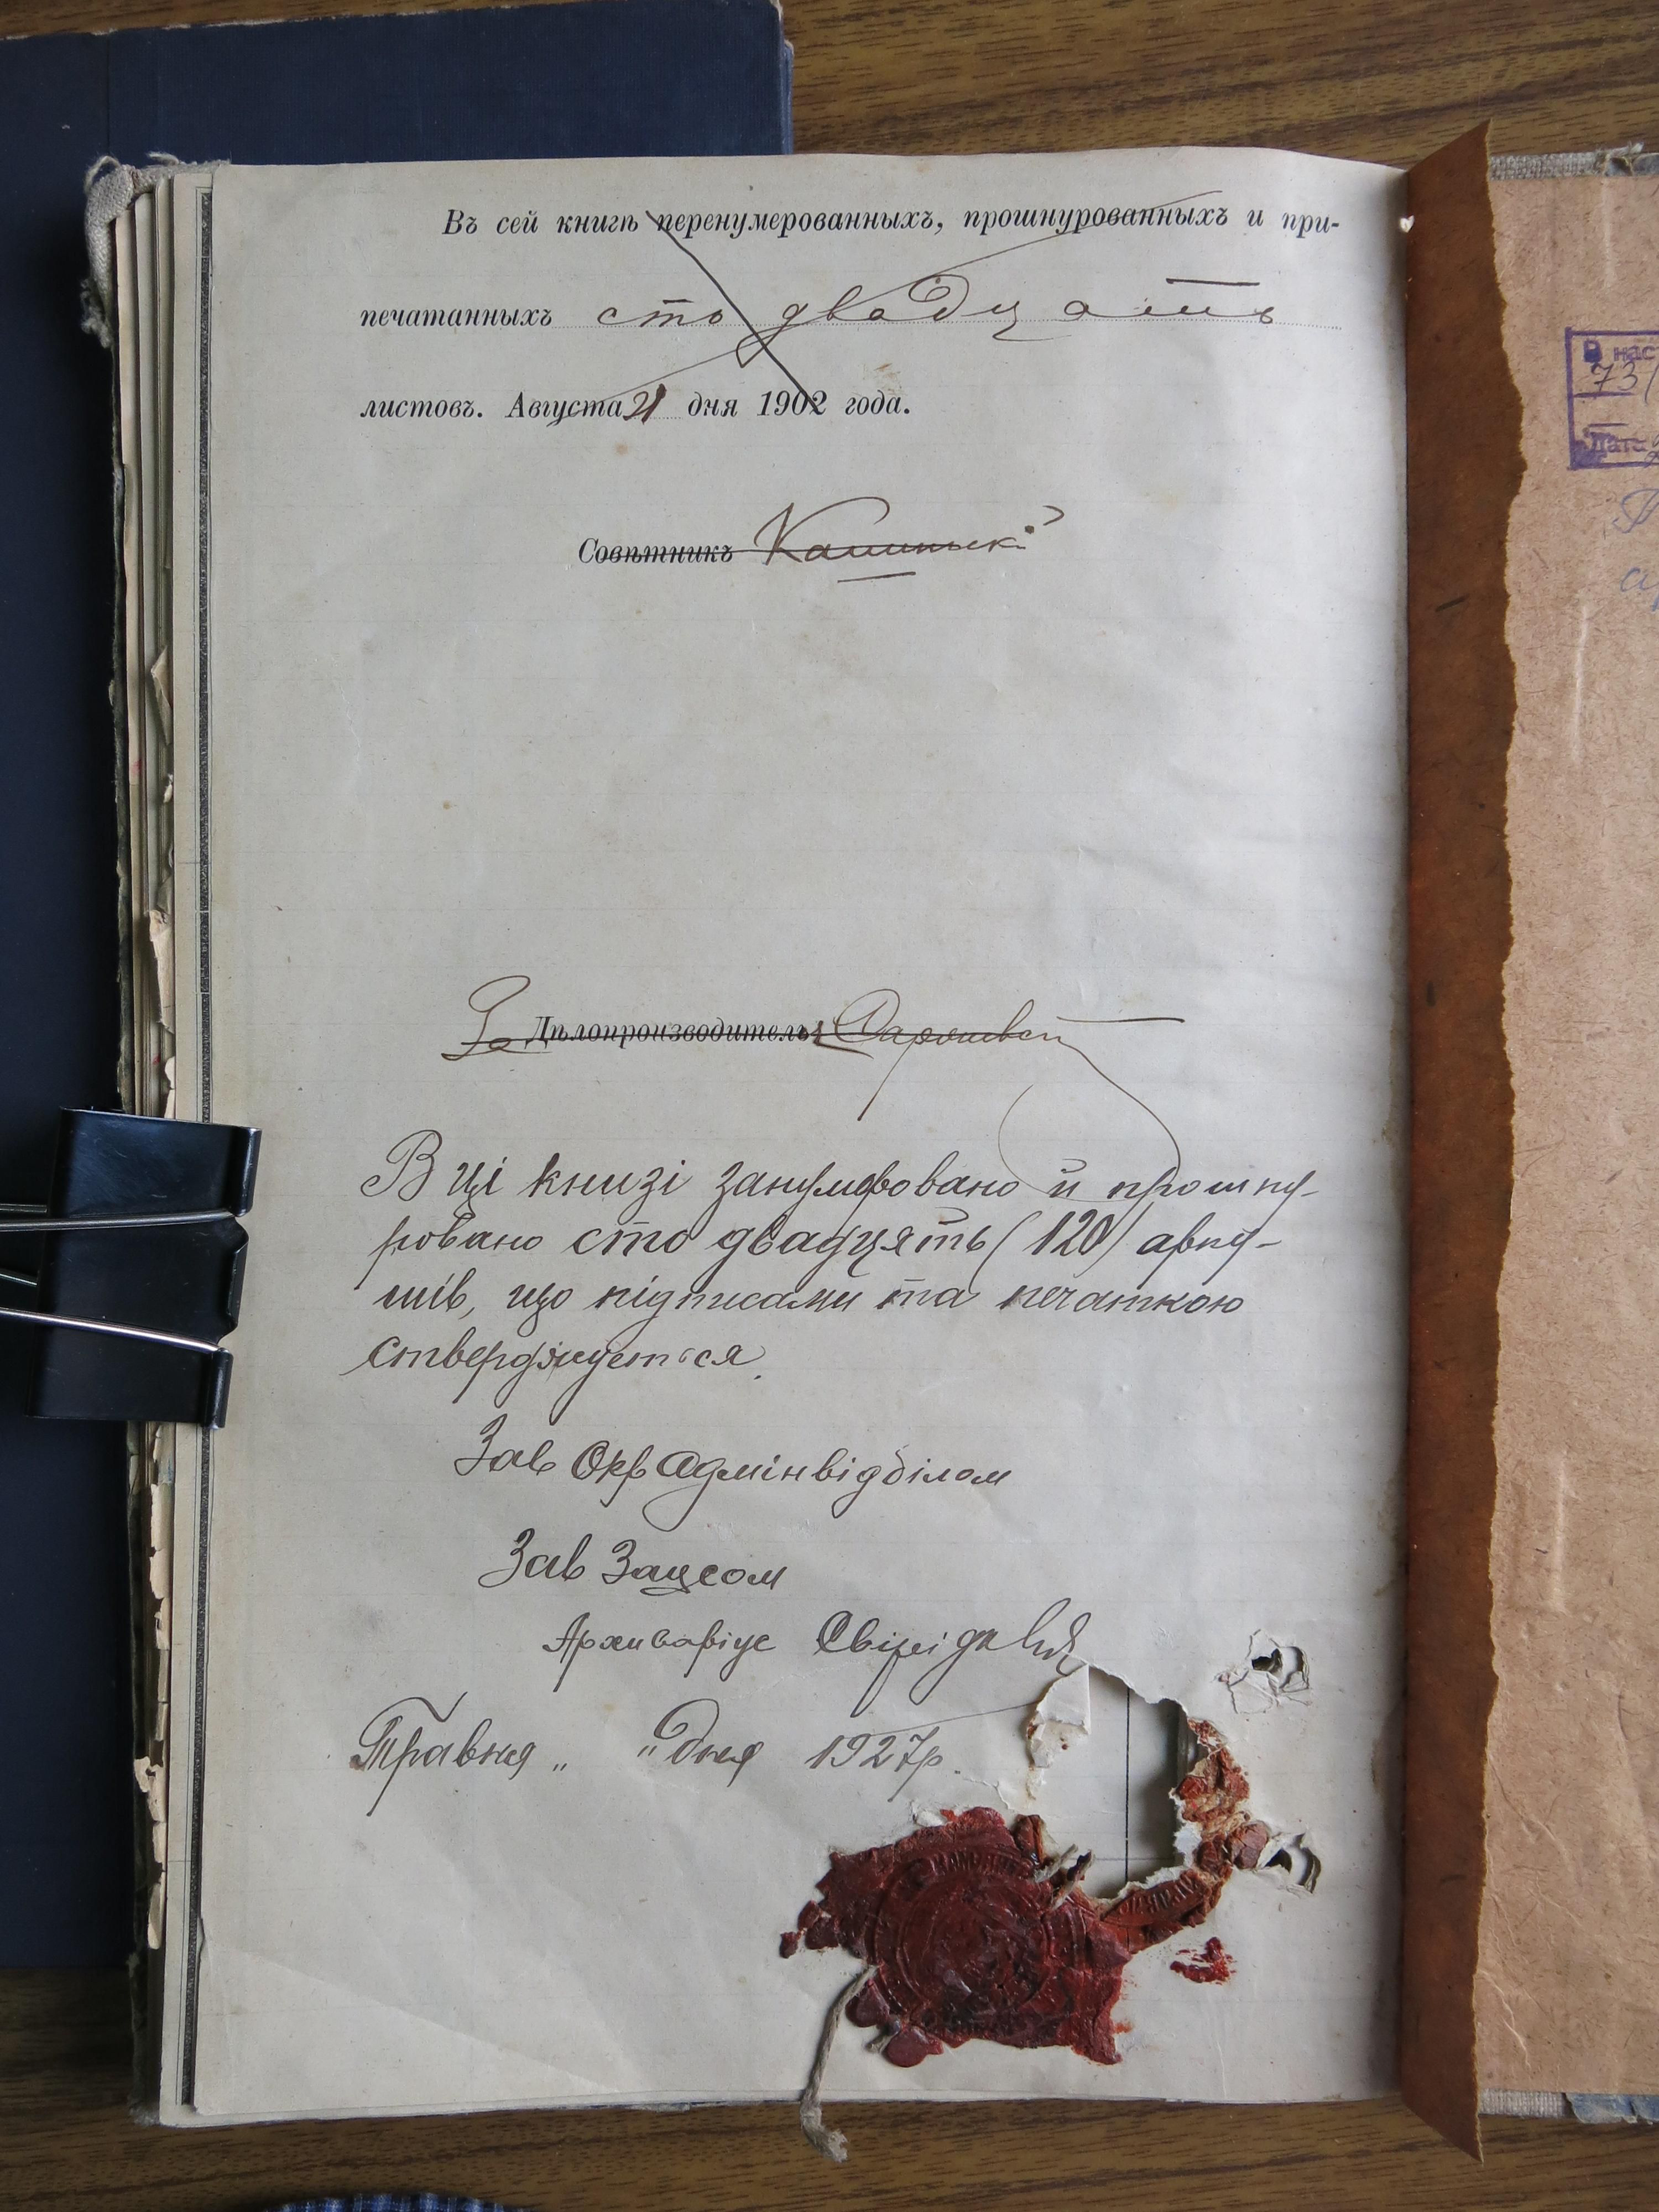 Въ сей книгѣ перенумерованныхъ, прошнурованныхъ и при-
печатанныхъ сто двадцать
листовъ. Августа 21 дня 1902 года.
Совѣтникъ
За Дѣлопроизводителя
В ці книзі занумеровано й прошну-
ровано сто двадцять (120) арку-
шів, що підписами та печаткою
стверджується.
Зав Окр Адмінвідділом
Зав Загсом
Архиваріус
Травня „ " дня 1927р.
В нас
73
Дата